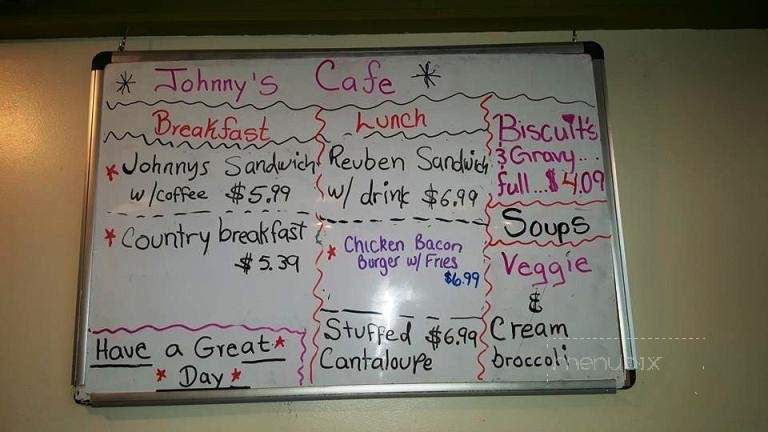 * Johnny's Cafe *
Breakfast
* Johnnys Sandwich
w/coffee $5.99
* Country breakfast
$5.39
Have a Great *
* Day *
Lunch
Reuben Sandwich
w/ drink $6.99
* Chicken Bacon
Burger w/ Fries
$6.99
Stuffed $6.99
Cantaloupe
Biscuit's
& Gravy...
full...$4.09
Soups
Veggie
&
Cream
broccoli
menupix